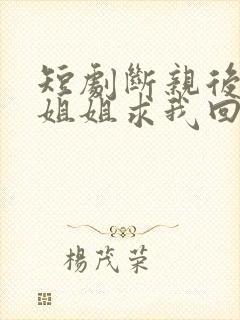 短劇斷親後
姐姐求我回
楊茂荣